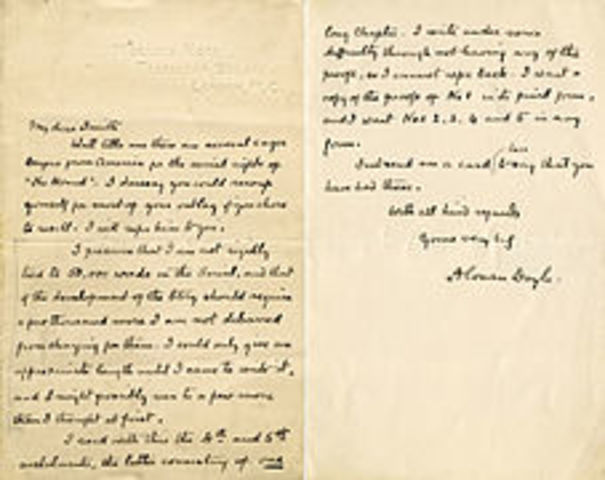 My dear Smith
Watt tells me there are several eager
buyers from America for the serial rights of
"The Hound". I daresay you could recoup
yourself for most of your outlay if you chose
to sell. I will refer him to you.
I presume that I am not rigidly
tied to 50,000 words in the Serial, and that
if the development of the Story should require
a few thousand more I am not debarred
from charging for them. I could only give an
approximate length until I came to write it,
and I might possibly run to a few more
than I thought at first.
I send with this the 4th and 5th
instalments, the latter consisting of one
long Chapter. I write under some
difficulty through not having any of the
proofs, so I cannot refer back. I want a
copy of the proofs of No 1 in its final form,
and I want Nos 2, 3, 4 and 5 in any
form.
send me a card to say that you
have had these.
With all kind regards
Yours very
A Conan Doyle.